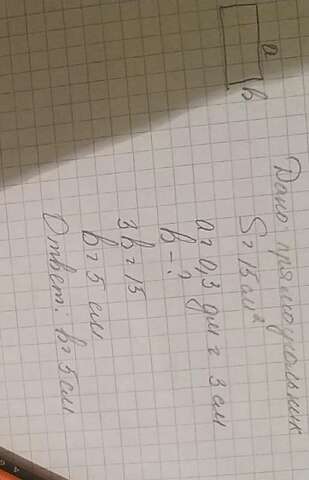 a
b
Дано: прямоугольник
S = 15 см²
a = 0,3 дм = 3 см
b - ?
3b = 15
b = 5 см
Ответ: b = 5 см